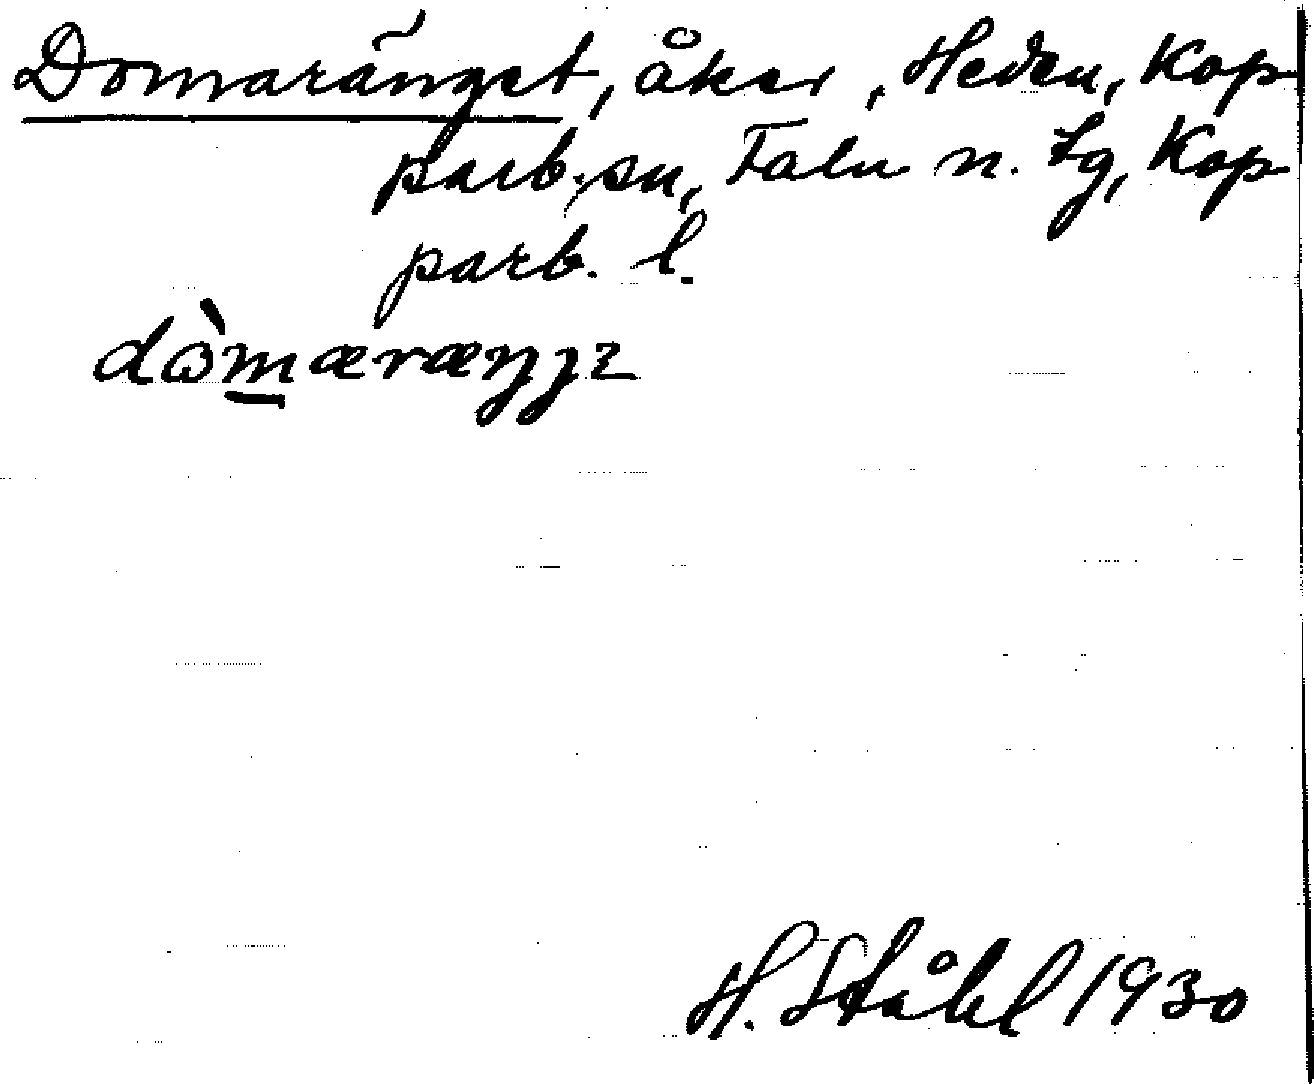 Domaränget, åker, Heden, Kop
parb. sn, Falu n. tg, Kop
parb. l.
dὼmæræŋȷz
H. Ståhl 1930